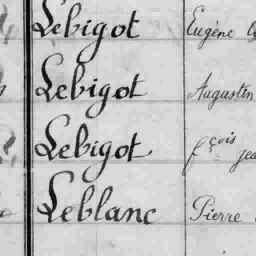 Lebigot Eugène
Lebigot Augustin
Lebigot fçois
Leblanc Pierre